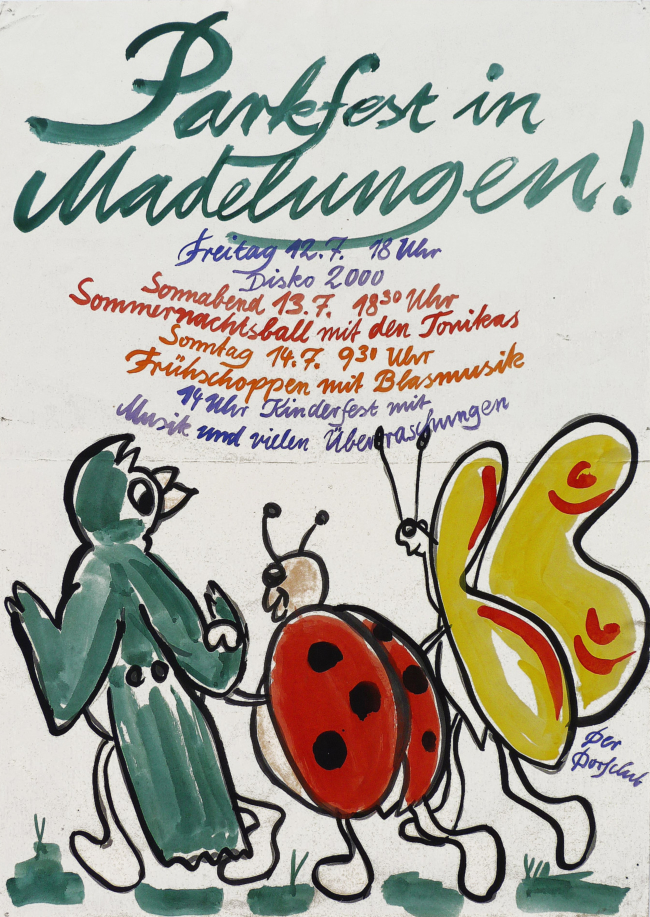 Parkfest in
Madelungen!
Freitag 12.7. 18 Uhr
Disko 2000
Sonnabend 13.7. 18³⁰ Uhr
Sommernachtsball mit den Tonikas
Sonntag 14.7. 9³⁰ Uhr
Frühschoppen mit Blasmusik
14 Uhr Kinderfest mit
Musik und vielen Überraschungen
Der
Dorfclub